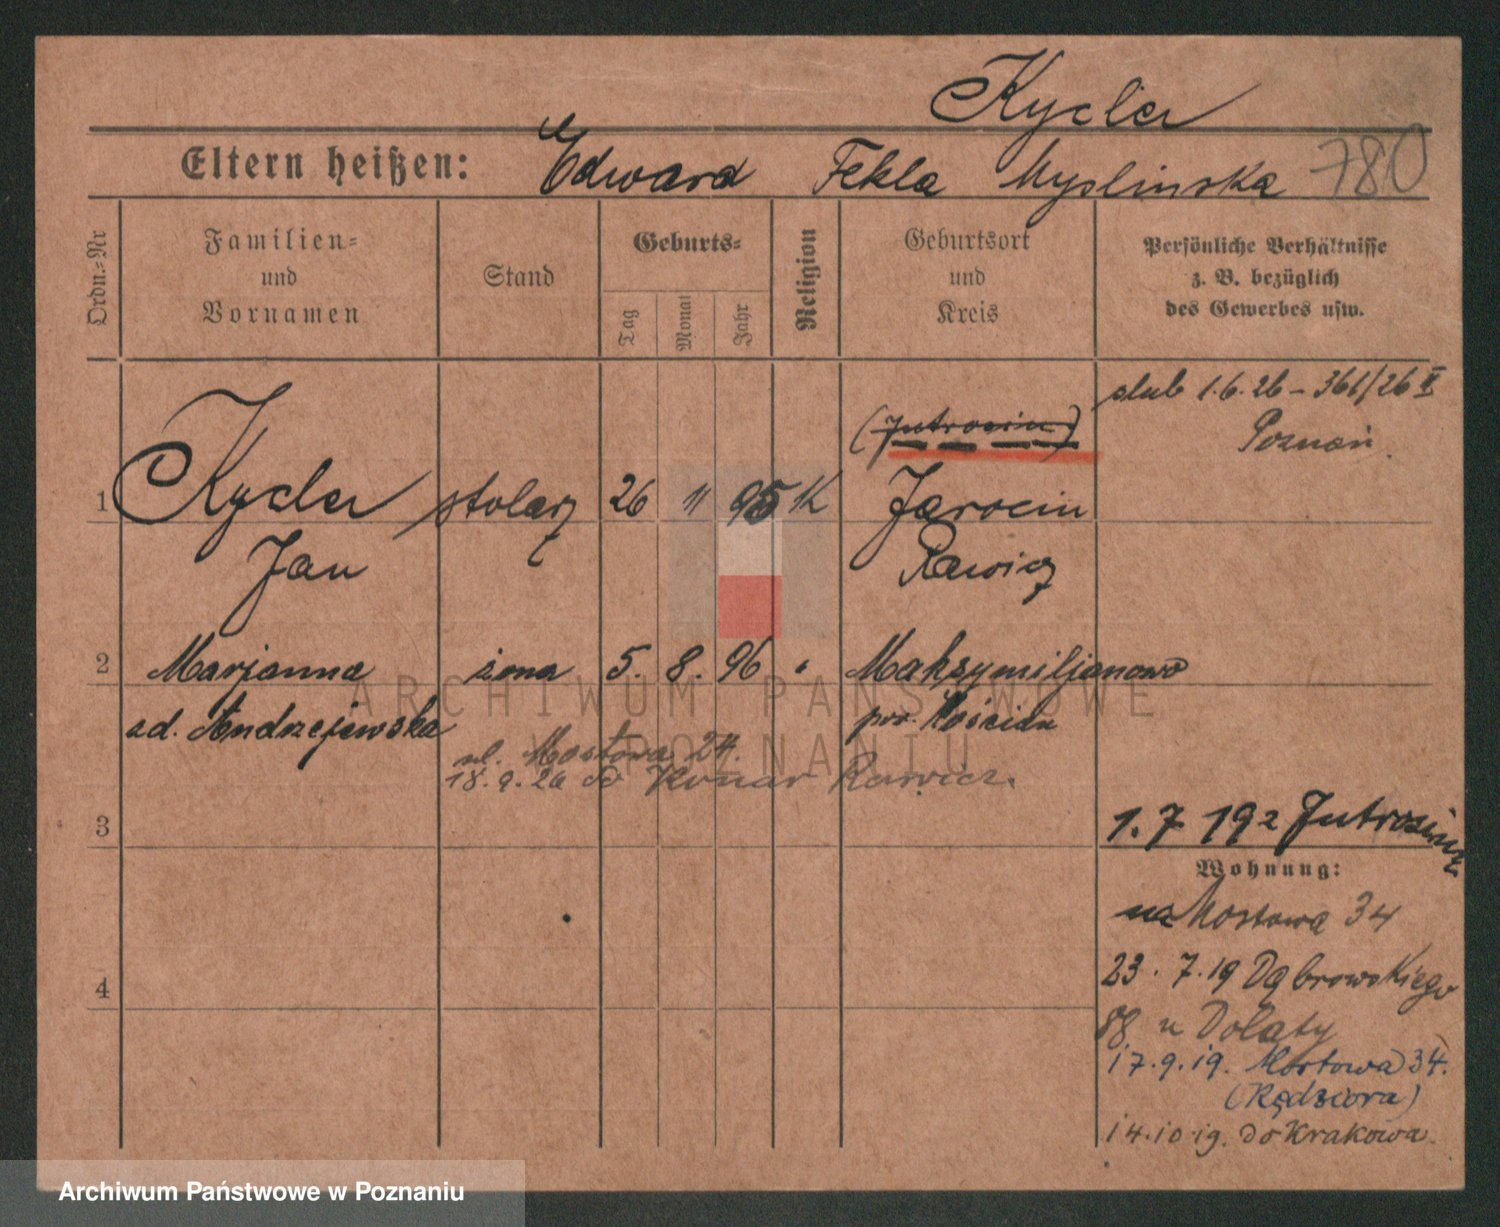 Kycler
Eltern heißen: Edward Tekla Myslinska 780
Ordn.-Nr
Familien-
und
Vornamen
Stand
Geburts-
Tag
Monat
Jahr
Religion
Geburtsort
und
Kreis
Persönliche Verhältnisse
z. B. bezüglich
des Gewerbes usw.
ślub 1.6.26 - 361/26 II
Poznań.
(Jutrosin)
1 Kycler stolarz 26 11 95 K Jarocin
Jan Rawicz
2 Marjanna żona 5. 8. 96 " Maksymiljanowo
zd. Andrzejewska pow. Kościan
ul. Mostowa 24.
18.9.26 do Konar Rawicz.
3
1.7 192 Jutrosina
Wohnung:
Mostowa 34
23. 7.19 Dąbrowskiego
88 u Dolaty
17.9.19. Mostowa 34.
(Kędziora)
4
14.10.19. do Krakowa.
ARCHIWUM PAŃSTWOWE
W POZNANIU
Archiwum Państwowe w Poznaniu